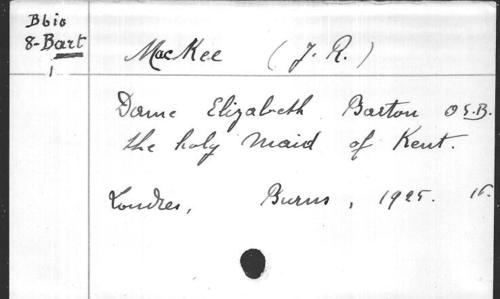 Bbio
8-Bart
1
MacKee (J. R.)
Dame Elizabeth Barton O.S.B.
the holy Maid of Kent.
Londres, Burns, 1925.